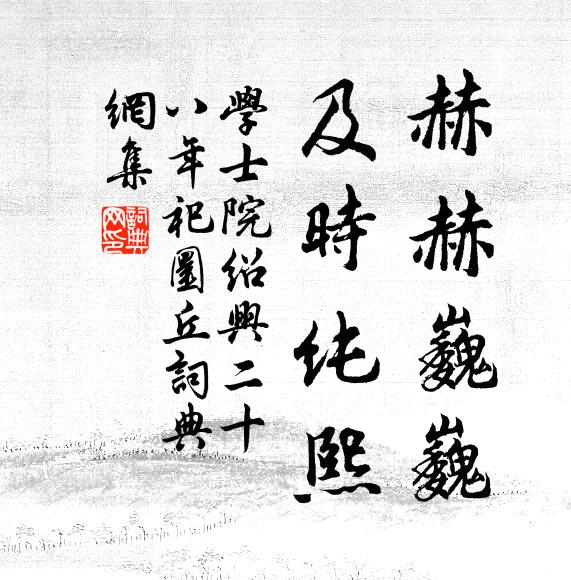 赫赫巍巍
及時純熙
學士院紹興二十
八年祀圜丘詞典
網集
詞典
网印